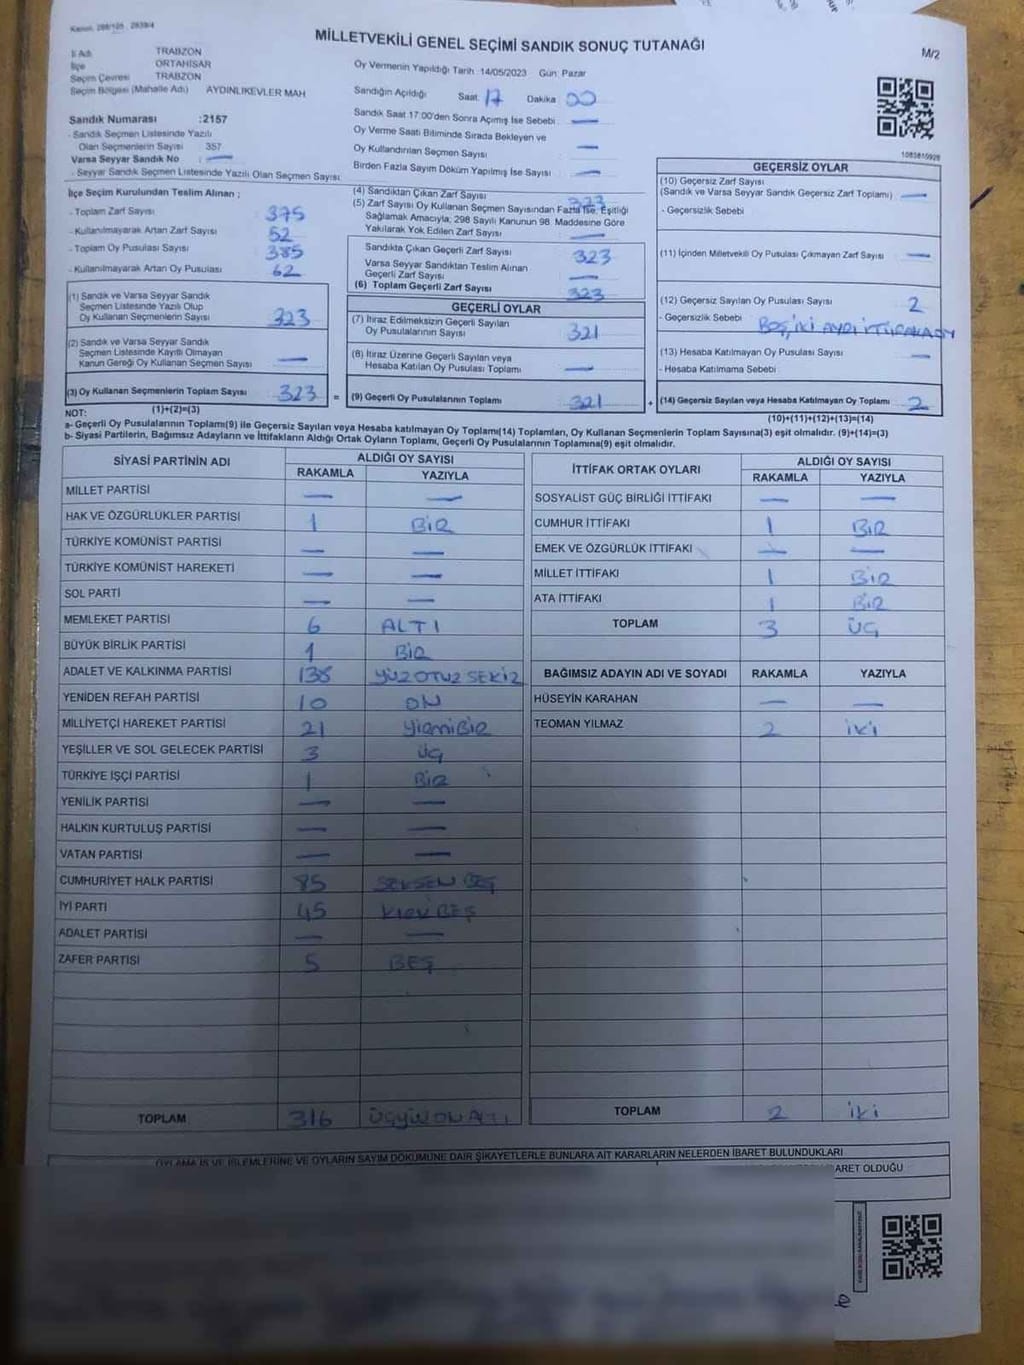 MİLLETVEKİLİ GENEL SEÇİMİ SANDIK SONUÇ TUTANAĞI
M/2
İl Adı TRABZON
İlçe ORTAHİSAR
Seçim Çevresi TRABZON
Seçim Bölgesi (Mahalle Adı) AYDINLIKEVLER MAH
Sandık Numarası :2157
- Sandık Seçmen Listesinde Yazılı
Olan Seçmenlerin Sayısı 357
Varsa Seyyar Sandık No : —
- Seyyar Sandık Seçmen Listesinde Yazılı Olan Seçmen Sayısı:
Oy Vermenin Yapıldığı Tarih 14/05/2023 Gün: Pazar
Sandığın Açıldığı Saat: 17 Dakika 00
Sandık Saat 17:00'den Sonra Açımış İse Sebebi —
Oy Verme Saati Bitiminde Sırada Bekleyen ve
Oy Kullandırılan Seçmen Sayısı —
Birden Fazla Sayım Döküm Yapılmış İse Sayısı —
1083810928
İlçe Seçim Kurulundan Teslim Alınan ;
- Toplam Zarf Sayısı 375
- Kullanılmayarak Artan Zarf Sayısı 52
- Toplam Oy Pusulası Sayısı 385
- Kullanılmayarak Artan Oy Pusulası 62
(1) Sandık ve Varsa Seyyar Sandık
Seçmen Listesinde Yazılı Olup
Oy Kullanan Seçmenlerin Sayısı 323
(2) Sandık ve Varsa Seyyar Sandık
Seçmen Listesinde Kayıtlı Olmayan
Kanun Gereği Oy Kullanan Seçmen Sayısı —
(3) Oy Kullanan Seçmenlerin Toplam Sayısı 323 =
(1)+(2)=(3)
(4) Sandıktan Çıkan Zarf Sayısı 323
(5) Zarf Sayısı Oy Kullanan Seçmen Sayısından Fazla İse, Eşitliği
Sağlamak Amacıyla; 298 Sayılı Kanunun 98. Maddesine Göre
Yakılarak Yok Edilen Zarf Sayısı —
Sandıkta Çıkan Geçerli Zarf Sayısı 323
Varsa Seyyar Sandıktan Teslim Alınan
Geçerli Zarf Sayısı —
(6) Toplam Geçerli Zarf Sayısı 323
GEÇERLİ OYLAR
(7) İtiraz Edilmeksizin Geçerli Sayılan
Oy Pusulalarının Sayısı 321
(8) İtiraz Üzerine Geçerli Sayılan veya
Hesaba Katılan Oy Pusulası Toplamı —
(9) Geçerli Oy Pusulalarının Toplamı 321 +
GEÇERSİZ OYLAR
(10) Geçersiz Zarf Sayısı
(Sandık ve Varsa Seyyar Sandık Geçersiz Zarf Toplamı) —
- Geçersizlik Sebebi
(11) İçinden Milletvekili Oy Pusulası Çıkmayan Zarf Sayısı —
(12) Geçersiz Sayılan Oy Pusulası Sayısı 2
- Geçersizlik Sebebi BOŞ, İKİ AYRI
(13) Hesaba Katılmayan Oy Pusulası Sayısı —
- Hesaba Katılmama Sebebi
(14) Geçersiz Sayılan veya Hesaba Katılmayan Oy Toplamı 2
(10)+(11)+(12)+(13)=(14)
NOT:
a- Geçerli Oy Pusulalarının Toplamı(9) ile Geçersiz Sayılan veya Hesaba katılmayan Oy Toplamı(14) Toplamları, Oy Kullanan Seçmenlerin Toplam Sayısına(3) eşit olmalıdır. (9)+(14)=(3)
b- Siyasi Partilerin, Bağımsız Adayların ve İttifakların Aldığı Ortak Oyların Toplamı, Geçerli Oy Pusulalarının Toplamına(9) eşit olmalıdır.
SİYASİ PARTİNİN ADI ALDIĞI OY SAYISI
RAKAMLA YAZIYLA
MİLLET PARTİSİ — —
HAK VE ÖZGÜRLÜKLER PARTİSİ 1 BİR
TÜRKİYE KOMÜNİST PARTİSİ — —
TÜRKİYE KOMÜNİST HAREKETİ — —
SOL PARTİ — —
MEMLEKET PARTİSİ 6 ALTI
BÜYÜK BİRLİK PARTİSİ 1 BİR
ADALET VE KALKINMA PARTİSİ 138 YÜZ OTUZ SEKİZ
YENİDEN REFAH PARTİSİ 10 ON
MİLLİYETÇİ HAREKET PARTİSİ 21 YİRMİBİR
YEŞİLLER VE SOL GELECEK PARTİSİ 3 ÜÇ
TÜRKİYE İŞÇİ PARTİSİ 1 BİR
YENİLİK PARTİSİ — —
HALKIN KURTULUŞ PARTİSİ — —
VATAN PARTİSİ — —
CUMHURİYET HALK PARTİSİ 85 SEKSEN BEŞ
İYİ PARTİ 45 KIRK BEŞ
ADALET PARTİSİ — —
ZAFER PARTİSİ 5 BEŞ
TOPLAM 316 ÜÇYÜZ ON ALTI
İTTİFAK ORTAK OYLARI ALDIĞI OY SAYISI
RAKAMLA YAZIYLA
SOSYALİST GÜÇ BİRLİĞİ İTTİFAKI — —
CUMHUR İTTİFAKI 1 BİR
EMEK VE ÖZGÜRLÜK İTTİFAKI — —
MİLLET İTTİFAKI 1 BİR
ATA İTTİFAKI 1 BİR
TOPLAM 3 ÜÇ
BAĞIMSIZ ADAYIN ADI VE SOYADI RAKAMLA YAZIYLA
HÜSEYİN KARAHAN — —
TEOMAN YILMAZ 2 İKİ
TOPLAM 2 İKİ
OYLAMA İŞ VE İŞLEMLERİNE VE OYLARIN SAYIM DÖKÜMÜNE DAİR ŞİKAYETLERLE BUNLARA AİT KARARLARIN NELERDEN İBARET BULUNDUKLARI
ARET OLDUĞU